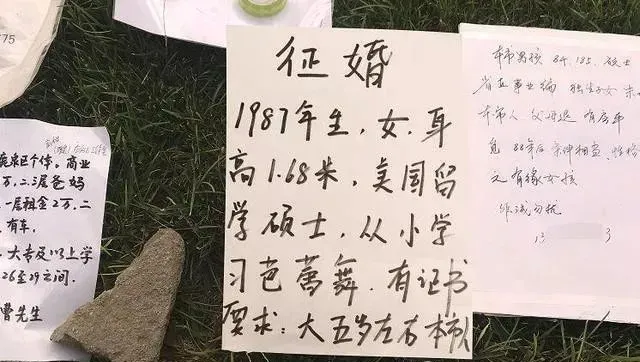 75
鹿泉区个体。商业
万,二三层爸妈
一层租金2万,二
有车.
大专及以上学
26至29之间.
曹先生
征婚
1987年生,女,身
高1.68米,美国留
学硕士,从小学
习芭蕾舞.有证书
要求:大五岁左右本市人
本市男孩 84, 185, 硕士
省直事业编 独生子女 未
本市人 父母退 有房车
觅 88年后 性格
有缘女孩
非诚勿扰
13 3